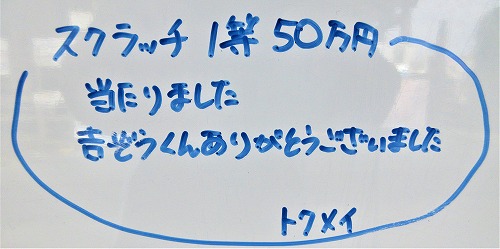 スクラッチ 1等 50万円
当たりました
吉ぞうくんありがとうございました
トクメイ